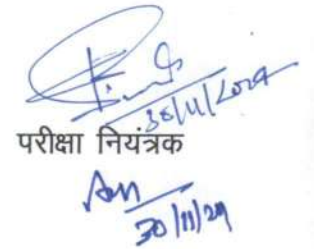 30/11/2024
परीक्षा नियंत्रक
30/11/24